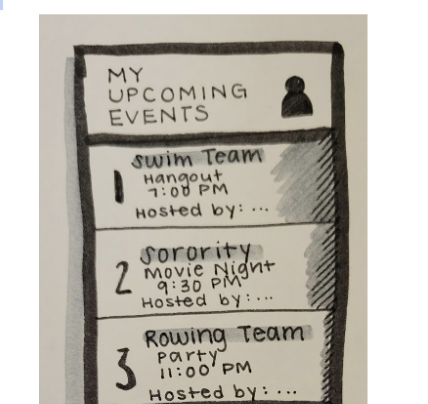 MY
UPCOMING
EVENTS
1 Swim Team
Hangout
7:00 PM
Hosted by: ...
2 Sorority
Movie Night
9:30 PM
Hosted by: ...
3 Rowing Team
Party
11:00 PM
Hosted by: ...